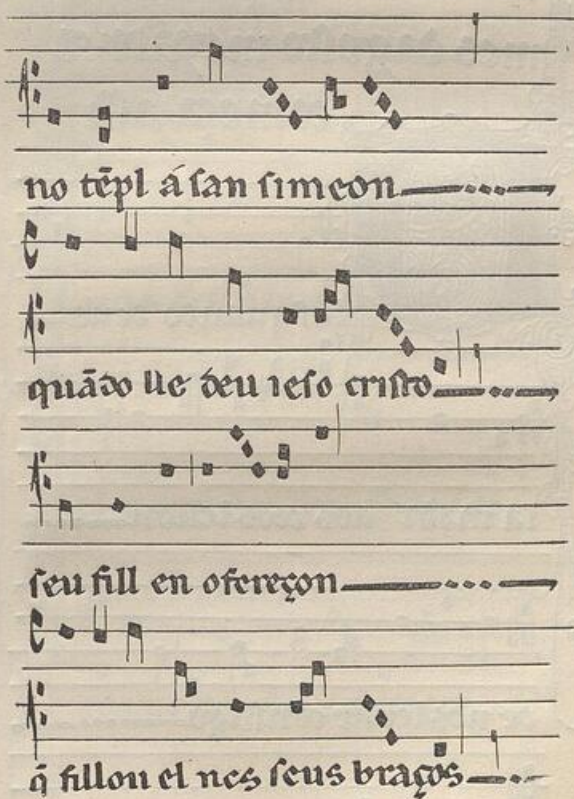 no tẽpl á san simeon
quãdo lle deu ieso cristo
seu fill en ofereçon
q̃ fillou el nos seus braços